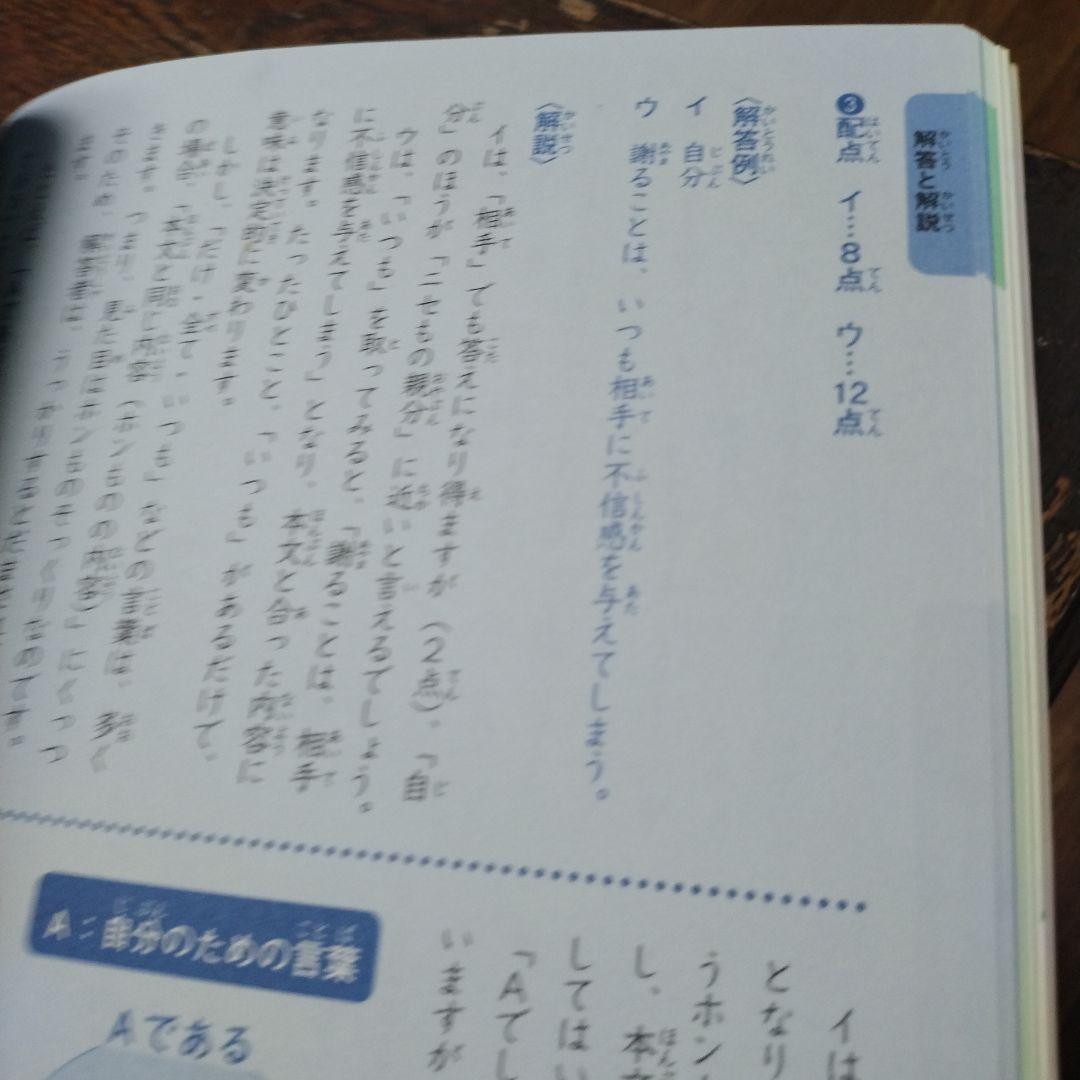 解答と解説
❸配点 イ…8点 ウ…12点
〈解答例〉
イ 自分
ウ 謝ることは、いつも相手に不信感を与えてしまう。
〈解説〉
イは、「相手」でも答えになり得ますが（2点）、「自
分」のほうが「ニセもの親分」に近いと言えるでしょう。
ウは、「いつも」を取ってみると、「謝ることは、相手
に不信感を与えてしまう」となり、本文と合った内容に
なります。たったひとこと、「いつも」があるだけで、
意味は決定的に変わります。
しかし、「だけ・全て・いつも」などの言葉は、多く
の場合、「本文と同じ内容（ホンモノの内容）」にくっつ
きます。つまり、見た目はホンモノそっくりなのです。
そのため、解答者は、うっかりすると
ます。
イは
となり
うホン
し、本文
してはい
「Aでし
いますが
A：自分のための言葉
Aである